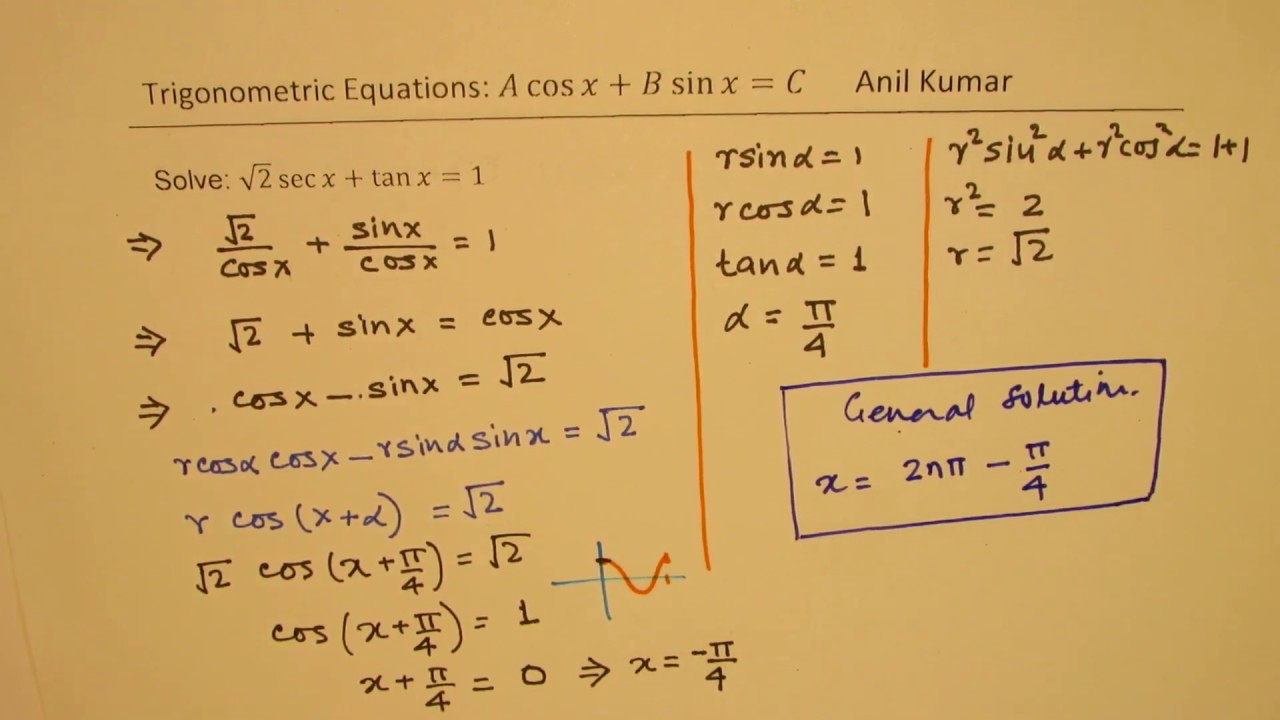 Trigonometric Equations: A cos x + B sin x = C Anil Kumar
Solve: √2 sec x + tan x = 1
⇒ √2/cosx + sinx/cosx = 1
⇒ √2 + sinx = cosx
⇒ . cosx - . sinx = √2
rcosα cosx - rsinα sinx = √2
r cos(x+α) = √2
√2 cos(x+π/4) = √2
cos(x+π/4) = 1
x+π/4 = 0 ⇒ x = -π/4
rsinα = 1
rcosα = 1
tanα = 1
α = π/4
r²sin²α + r²cos²α = 1+1
r² = 2
r = √2
General Solution.
x = 2nπ - π/4